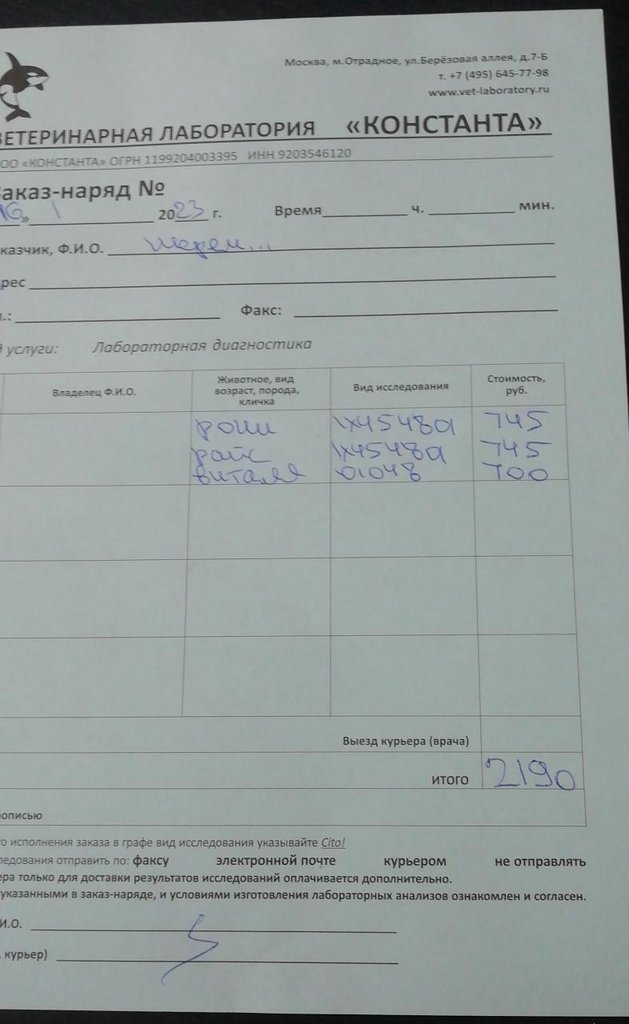 Москва, м.Отрадное, ул.Берёзовая аллея, д.7-Б
т. +7 (495) 645-77-98
www.vet-laboratory.ru
ВЕТЕРИНАРНАЯ ЛАБОРАТОРИЯ «КОНСТАНТА»
ООО «КОНСТАНТА» ОГРН 1199204003395 ИНН 9203546120
Заказ-наряд №
16» 1 2023 г. Время ч. мин.
аказчик, Ф.И.О.
рес
.: Факс:
д услуги: Лабораторная диагностика
Владелец Ф.И.О. Животное, вид возраст, порода, кличка Вид исследования Стоимость, руб.
рони 1x4548a 745
райс 1x4548a 745
виталя 01048 700
Выезд курьера (врача)
ИТОГО 2190
рописью
го исполнения заказа в графе вид исследования указывайте Cito!
ледования отправить по: факсу электронной почте курьером не отправлять
ера только для доставки результатов исследований оплачивается дополнительно.
указанными в заказ-наряде, и условиями изготовления лабораторных анализов ознакомлен и согласен.
И.О.
, курьер)